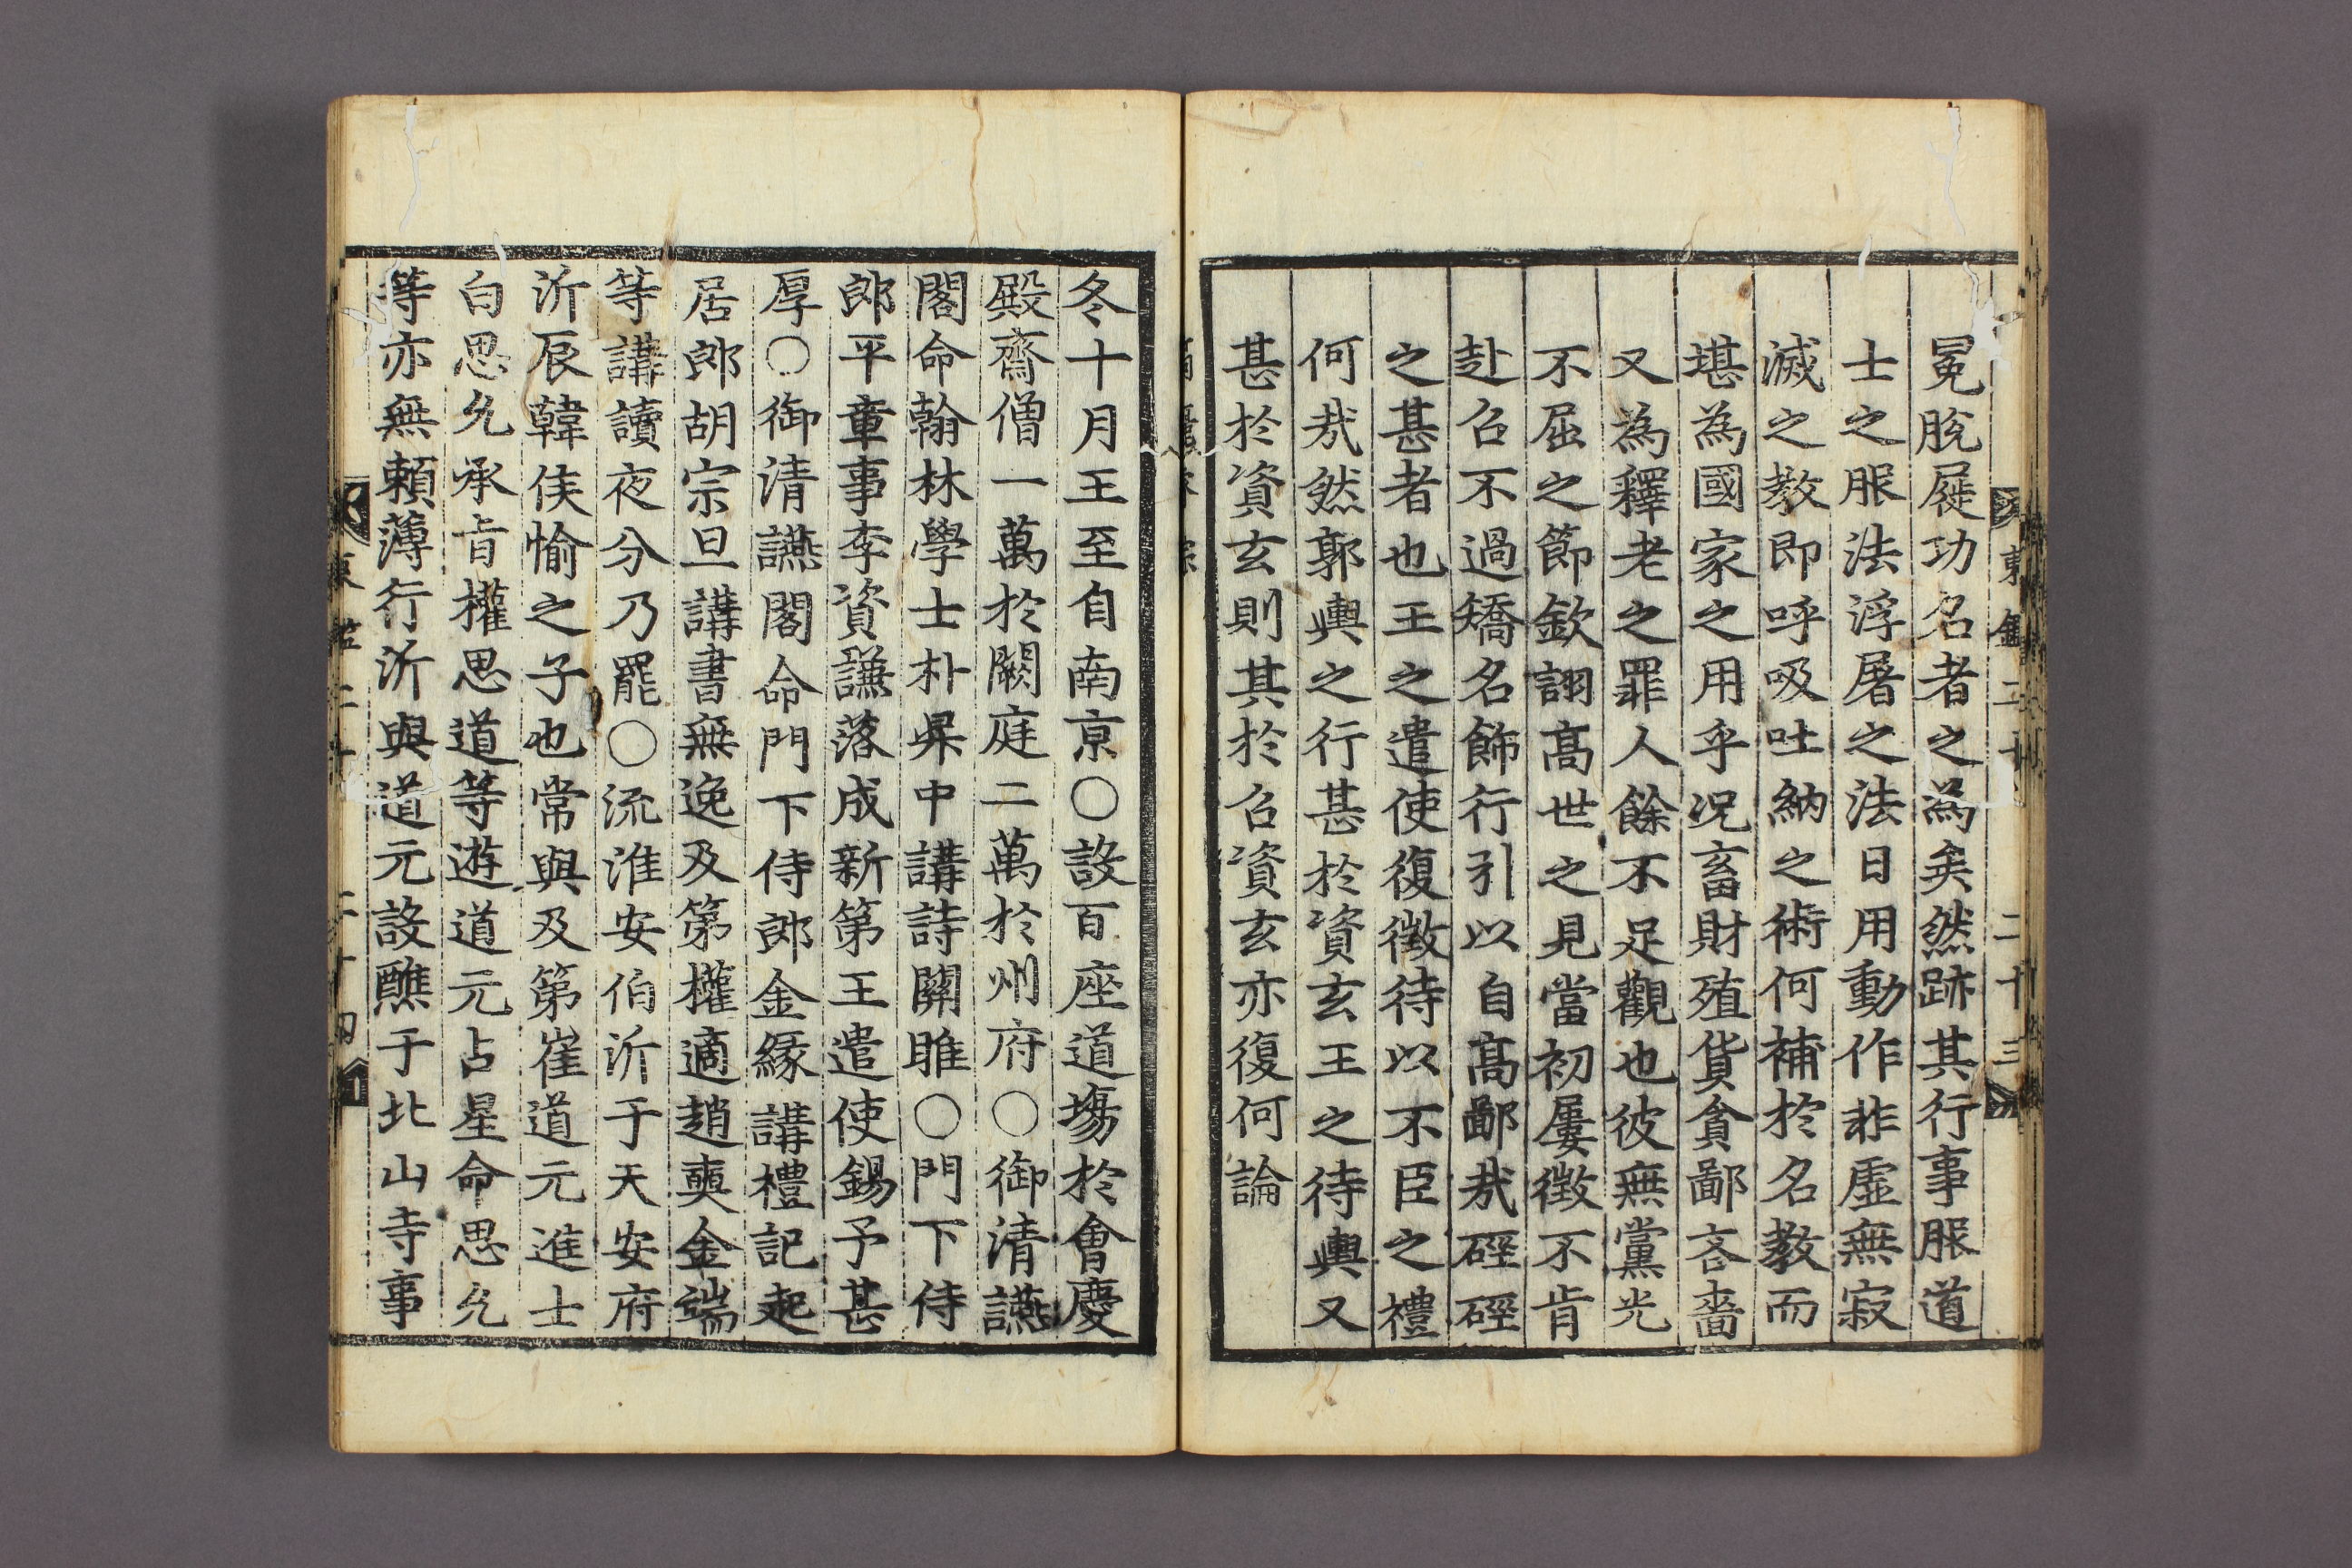 冕脫屣功名者之為矣然跡其行事服道
士之服法浮屠之法日用動作非虛無寂
滅之教即呼吸吐納之術何補於名教而
堪為國家之用乎況畜財殖貨貪鄙吝嗇
又為釋老之罪人餘不足觀也彼無黨光
不屈之節欽詡高世之見當初屢徵不肯
赴召不過矯名飾行引以自高鄙哉硜硜
之甚者也王之遣使復徵待以不臣之禮
何哉然郭輿之行甚於資玄王之待輿又
甚於資玄則其於召資玄亦復何論
東鑑二十
二十三
冬十月王至自南京○設百座道場於會慶
殿齋僧一萬於闕庭二萬於州府○御清讌
閣命翰林學士朴昇中講詩關雎○門下侍
郎平章事李資謙落成新第王遣使錫予甚
厚○御清讌閣命門下侍郎金緣講禮記起
居郎胡宗旦講書無逸及第權適趙奭金端
等講讀夜分乃罷○流淮安伯沂于天安府
沂辰韓侯愉之子也常與及第崔道元進士
白思允承旨權思道等遊道元占星命思允
等亦無賴薄行沂與道元設醮于北山寺事
二十四